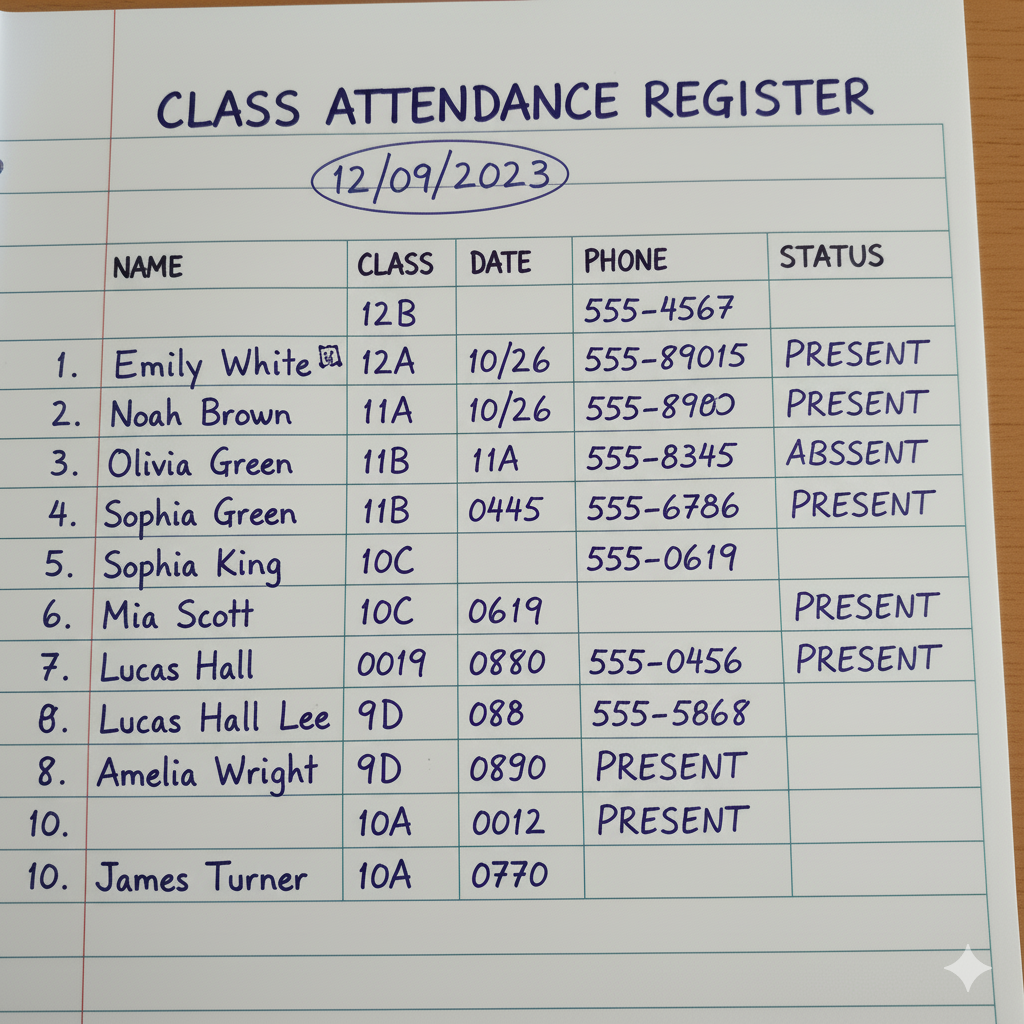 CLASS ATTENDANCE REGISTER
12/09/2023
NAME CLASS DATE PHONE STATUS
12B 555-4567
1. Emily White 12A 10/26 555-89015 PRESENT
2. Noah Brown 11A 10/26 PRESENT
3. Olivia Green 11B 11A 555-8345 ABSSENT
4. Sophia Green 11B 0445 555-6786 PRESENT
5. Sophia King 10C 555-0619
6. Mia Scott 10C 0619 PRESENT
7. Lucas Hall 0019 0880 555-0456 PRESENT
8. Lucas Hall Lee 9D 088 555-5868
8. Amelia Wright 9D 0890 PRESENT
10. 10A 0012 PRESENT
10. James Turner 10A 0770